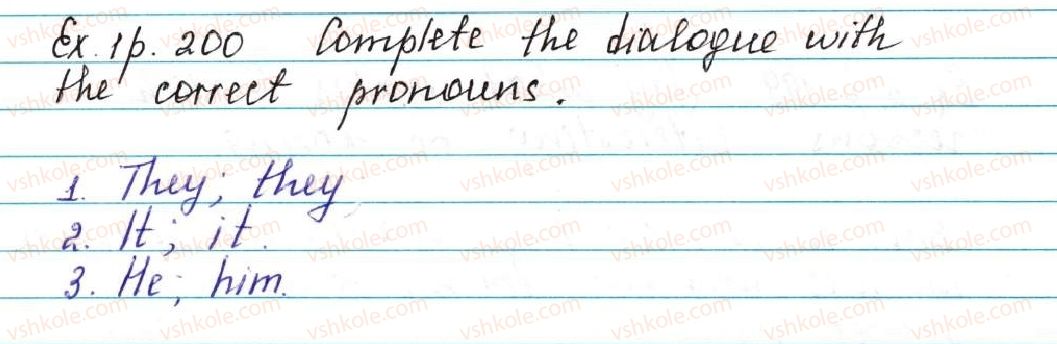 Ex. 1p. 200 Complete the dialogue with
the correct pronouns.
1. They; they
2. It; it.
3. He; him.